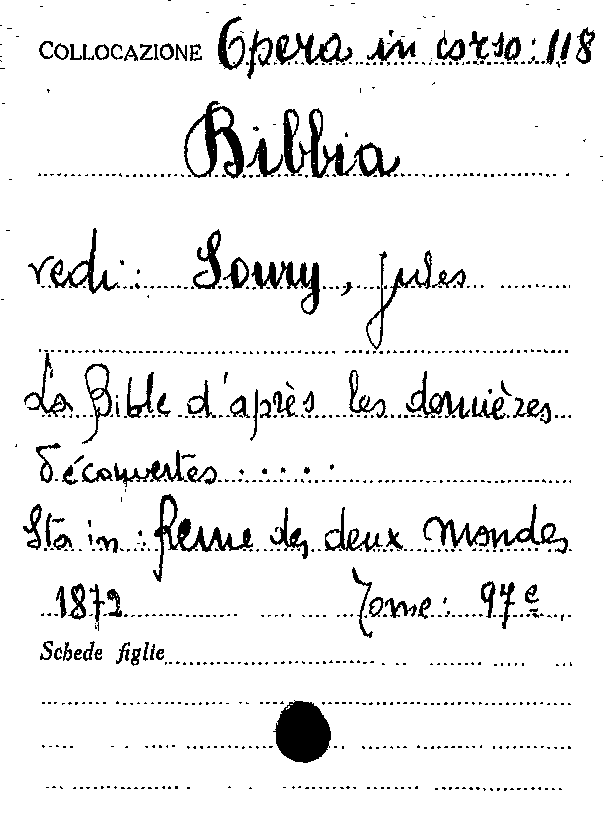 COLLOCAZIONE Opera in corso: 118
Bibbia
vedi: Soury, Jules
La Bible d'après les dernières
découvertes.....
Sta in: Revue des deux Mondes
1872 Tome: 97e
Schede figlie